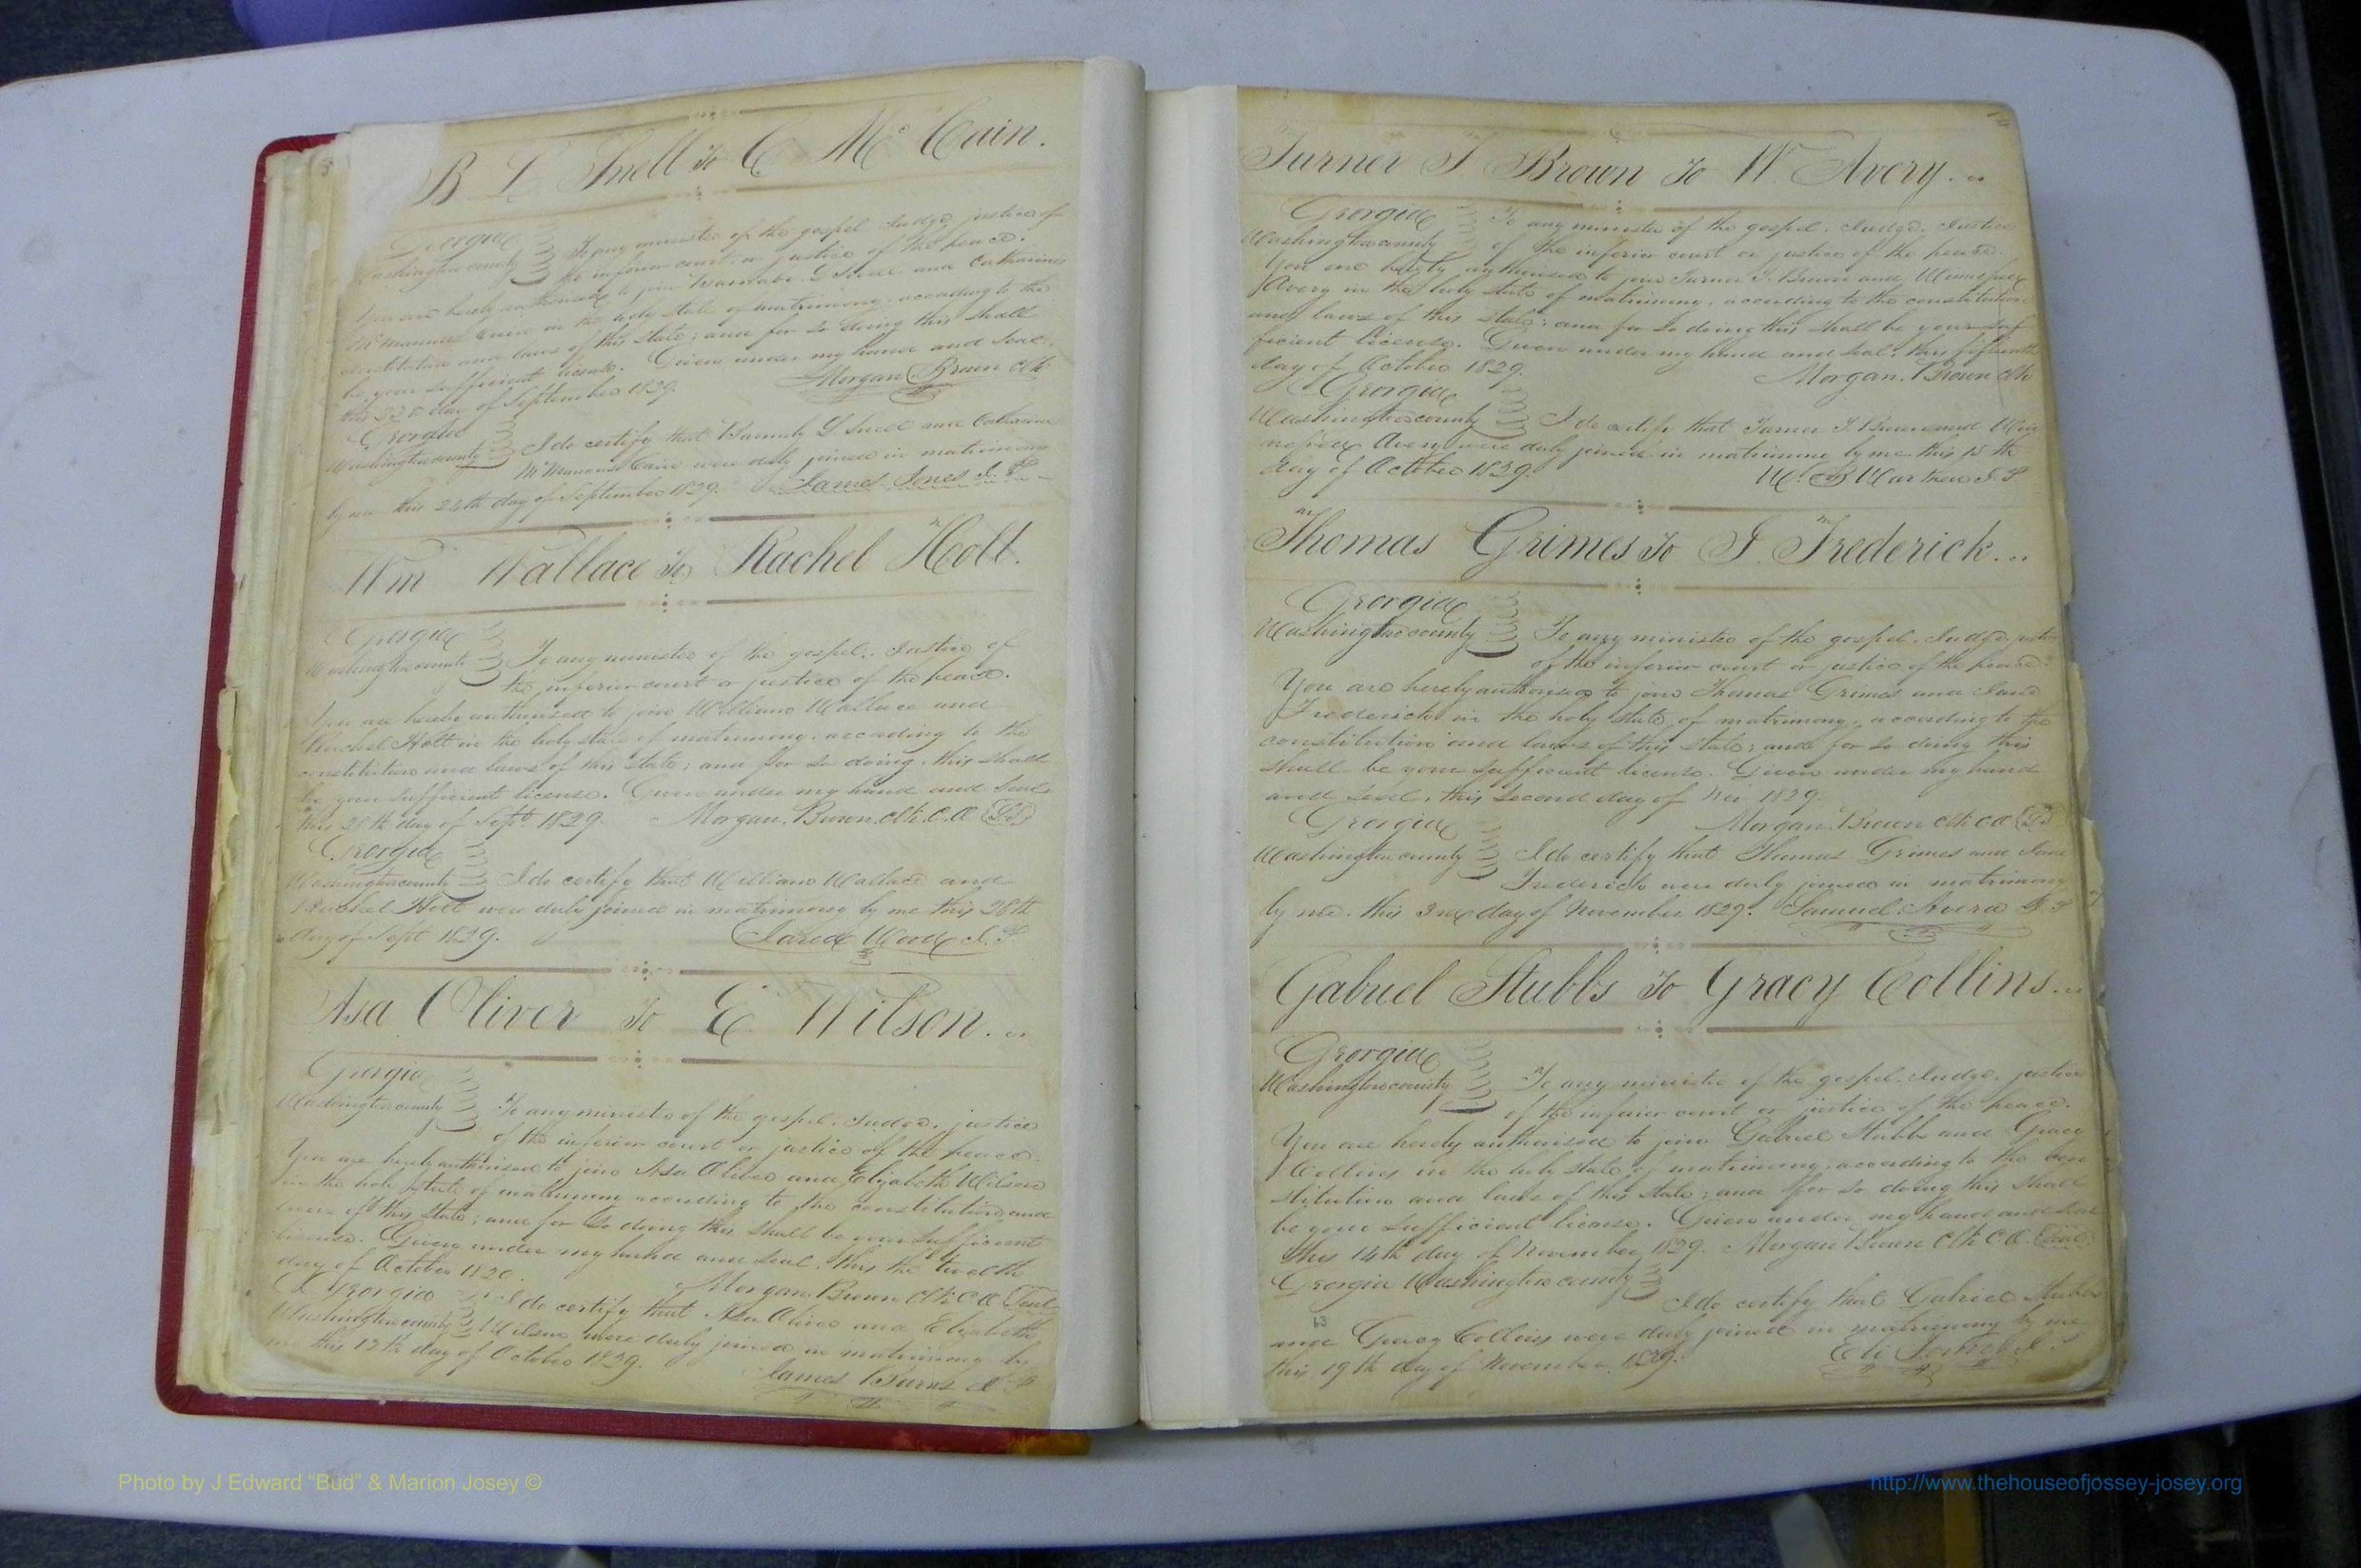 B L Snell To C Mc Cain.
Georgia
Washington county
To any minister of the gospel Judge, justice of
the inferior court or justice of the peace.
You are hereby authorised to join Barnaba L Snell and Catharine
McManus Cain in the holy state of matrimony, according to the
constitution and laws of this State; and for so doing this shall
be your sufficient license. Given under my hand and seal,
this day of September 1829. Morgan Brown Clk
Georgia
Washington county
I do certify that Barnaby L Snell and Catharine
McManus Cain were duly joined in matrimony
by me this 24th day of September 1829. James Jones J. P.
Wm Wallace To Rachel Holt.
Georgia
Washington county
To any minister of the gospel, Justice of
the inferior court or justice of the peace.
You are hereby authorised to join William Wallace and
Rachel Holt in the holy state of matrimony, according to the
constitution and laws of this State; and for so doing, this shall
be your sufficient license. Given under my hand and seal
this 28th day of Sept. 1829. Morgan Brown Clk. C. O.
Georgia
Washington county
I do certify that William Wallace and
Rachel Holt were duly joined in matrimony by me this 28th
day of Sept 1829. Jared Wood J. P.
Asa Oliver To E Wilson...
Georgia
Washington county
To any minister of the gospel, Judge, justice
of the inferior court or justice of the peace.
You are hereby authorised to join Asa Oliver and Elizabeth Wilson
in the holy state of matrimony according to the constitution and
laws of this State; and for so doing this shall be your sufficient
license. Given under my hand and seal, this the twelfth
day of October
Morgan Brown Clk C O Seal
Georgia
Washington county
I do certify that Asa Oliver and Elizabeth
Wilson were duly joined in matrimony by
me this 12th day of October 1829.
James Burns J. P
Turner T Brown To W. Avery...
Georgia
Washington county
To any minister of the gospel, Judge, Justice
of the inferior court or justice of the peace.
You are hereby authorised to join Turner T. Brown and Winnifred
Avery in the holy state of matrimony, according to the constitution
and laws of this State; and for so doing this shall be your suf
ficient license. Given under my hand and seal, this fifteenth
day of October 1829. Morgan Brown Clk
Georgia
Washington county
I do certify that Turner T. Brown and Win
nifred Avery were duly joined in matrimony by me this 15 th
day of October 1829. W. B Warthen J. P.
Thomas Grimes To J. Frederick...
Georgia
Washington county
To any minister of the gospel, Judge, justice
of the inferior court or justice of the peace.
You are hereby authorised to join Thomas Grimes and Jane
Frederick in the holy state of matrimony, according to the
constitution and laws of this State; and for so doing this
shall be your sufficient license. Given under my hand
and seal, this second day of Nov 1829.
Morgan Brown Clk C O
Georgia
Washington county
I do certify that Thomas Grimes and Jane
Frederick were duly joined in matrimony
by me this 3rd day of November 1829. Samuel Avera J P
Gabriel Stubbs To Gracy Collins...
Georgia
Washington county
To any minister of the gospel, Judge, justice
of the inferior court or justice of the peace.
You are hereby authorised to join Gabriel Stubbs and Gracy
Collins in the holy state of matrimony, according to the con
stitution and laws of this State; and for so doing this shall
be your sufficient license. Given under my hand and seal
this 14th day of November 1829. Morgan Brown Clk C O. Seal
Georgia Washington county
I do certify that Gabriel Stubbs
63
and Gracy Collins were duly joined in matrimony by me
this 19th day of November 1829.
Photo by J Edward “Bud” & Marion Josey ©
http://www.thehouseofjossey-josey.org